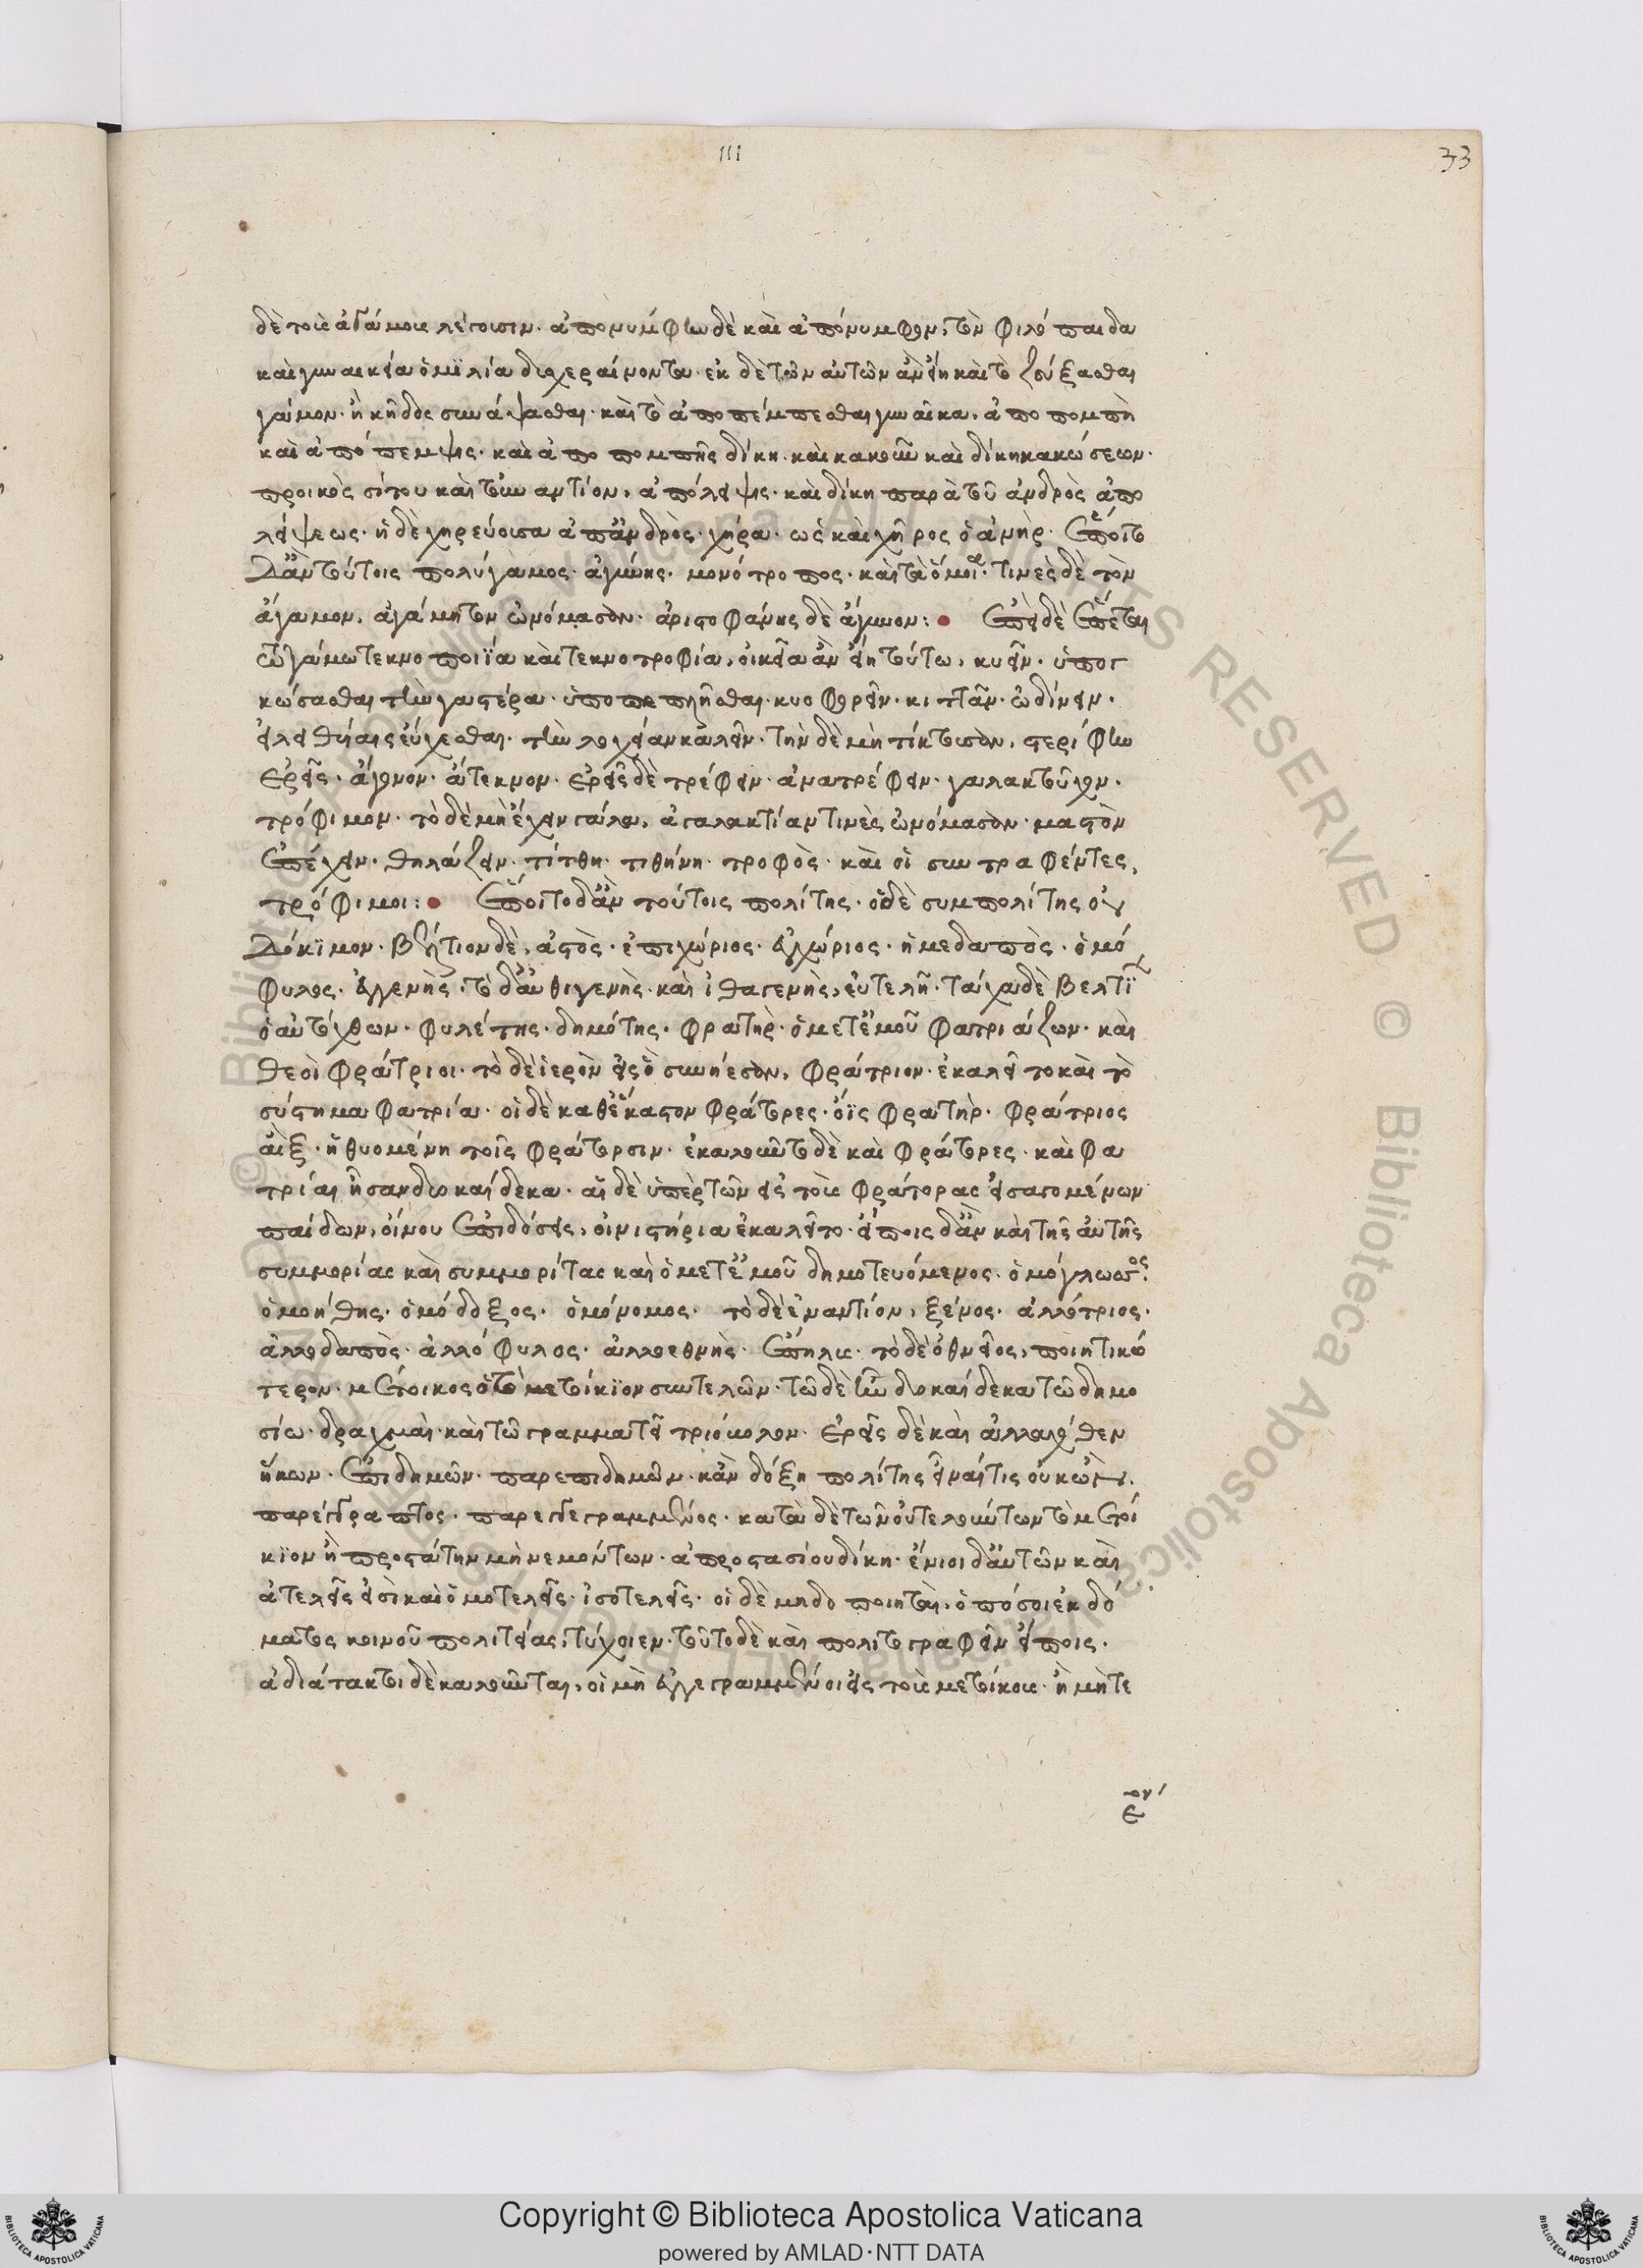 III
33
δὲ τοὺς ἀγάμους λέγουσιν· ἀπονυμφον δὲ καὶ ἀπόνυμφον, τὸν φιλόπαιδα
καὶ γυναικεία ὁμϊλία δυσχεραίνοντα· ἐκ δὲ τῶν αὐτῶν ἂν εἴη καὶ τὸ ζεύξασθαι
γάμον· ἢ κῆδος συνάψασθαι· καὶ τὸ ἀποπέμπεσθαι γυναῖκα, ἀποπομπὴ
καὶ ἀπόπεμψις· καὶ ἀποπομπῆς δίκη· καὶ κακοῦν καὶ δίκη κακώσεων·
προικὸς σίτου καὶ τοὐναντίον, ἀπόλειψις· καὶ δίκη παρὰ τοῦ ἀνδρὸς ἀπο
λείψεως· ἡ δὲ χηρεύουσα ἀπ' ἀνδρὸς· χήρα· ὡς καὶ χῆρος ὁ ἀνὴρ· ἕποιτο
δ' ἂν τούτοις πολύγαμος· ἀγύνης· μονότροπος· καὶ τὰ ὅμοια· τινὲς δὲ τὸν
ἄγαμον, ἀγάμητον ὠνόμασαν· ἀριστοφάνης δὲ ἄγυνον: ἐπεὶ δὲ ἕπεται
τῶ γάμω τεκνοποιΐα καὶ τεκνοτροφία, οἰκεῖα ἂν εἴη τούτω, κυεῖν· ὑπογ
κώσασθαι τὴν γαστέρα· ὑποπεπλῆσθαι· κυοφορεῖν· κιττᾶν· ὠδίνειν·
εἰλειθυίαις εὔχεσθαι· τὴν λοχείαν καλεῖν· τὴν δὲ μὴ τίκτουσαν, στερίφην
ἐρεῖς· ἄγονον· ἄτεκνον· ἐρεῖς δὲ τρέφειν· ἀνατρέφειν· γαλακτοῦχον·
τρόφιμον· τὸ δὲ μὴ ἔχειν γάλα, ἀγαλακτίαν τινὲς ὠνόμασαν· μαστὸν
ἐπέχειν· θηλάζειν· τίτθη· τιθήνη· τροφὸς· καὶ οἱ συντραφέντες,
τρόφιμοι: ἕποιτο δ' ἂν τούτοις πολίτης· ὁ δὲ συμπολίτης οὐ
δόκϊμον· βέλτιον δὲ, ἀστὸς· ἐπιχώριος· ἐγχώριος· ἡμεδαπὸς· ὁμό
φυλος· ἐγγενὴς· τὸ δ' αὐθιγενὴς· καὶ ἰθαγενὴς, εὐτελῆ· τάχα δὲ βελτΐ
ὁ αὐτόχθων· φυλέτης· δημότης· φρατὴρ· ὁ μετ' ἐμοῦ φατριάζων· καὶ
θεοὶ φράτριοι· τὸ δὲ ἱερὸν εἰς ὃ συνήεσαν, φράτριον· ἐκαλεῖτο καὶ τὸ
σύστημα φατρία· οἱ δὲ καθ' ἕκαστον φράτορες· οἷς φρατὴρ· φράτριος
αἲξ· ἡ θυομένη τοῖς φράτορσιν· ἐκαλοῦντο δὲ καὶ φράτορες· καὶ φα
τρίαι ἦσαν δυοκαίδεκα· αἱ δὲ ὑπὲρ τῶν εἰς τοὺς φράτορας εἰσαγομένων
παίδων, οἴνου ἐπιδόσεις, οἰνιστήρια ἐκαλεῖτο· εἴποις δ' ἂν καὶ τῆς αὐτῆς
συμμορίας καὶ συμμορίτας καὶ ὁ μετ' ἐμοῦ δημοτευόμενος· ὁμόγλωσσος·
ὁμοήθης· ὁμόδοξος· ὁμόνομος· τὸ δὲ ἐναντίον, ξένος· ἀλλότριος·
ἀλλοδαπὸς· ἀλλόφυλος· ἀλλοεθνὴς· ἔπηλυς· τὸ δὲ ὀθνεῖος, ποιητικώ
τερον· μέτοικος ὁ τὸ μετοίκϊον συντελῶν· τὸ δὲ ἦν δυοκαίδεκα τῶ δημο
σίω· δραχμαὶ· καὶ τῶ γραμματεῖ τριόβολον· ἐρεῖς δὲ καὶ ἀλλαχόθεν
ἥκων· ἐπιδημῶν· παρεπιδημῶν· κἂν δόξη πολίτης εἶναί τις οὐκ ὢν,
παρέγγραπτος· παρεγγεγραμμένος· κατὰ δὲ τῶν οὐ τελούντων τὸ μετοί
κϊον ἢ προστάτην μὴ νεμόντων· ἀπροστασίου δίκη· ἔνιοι δ' αὐτῶν καὶ
ἀτελεῖς εἰσὶ καὶ ὁμοτελεῖς· ἰσοτελεῖς· οἱ δὲ μηδοποιηταὶ, ὁπόσοι ἐκ δό
ματος κοινοῦ πολιτείας, τύχοιεν· τοῦτο δὲ καὶ πολιτογραφεῖν εἴποις·
ἀδιάτακτοι δὲ καλοῦνται, οἱ μὴ ἐγγεγραμμένοι εἰς τοὺς μετοίκους· ἢ μήτε